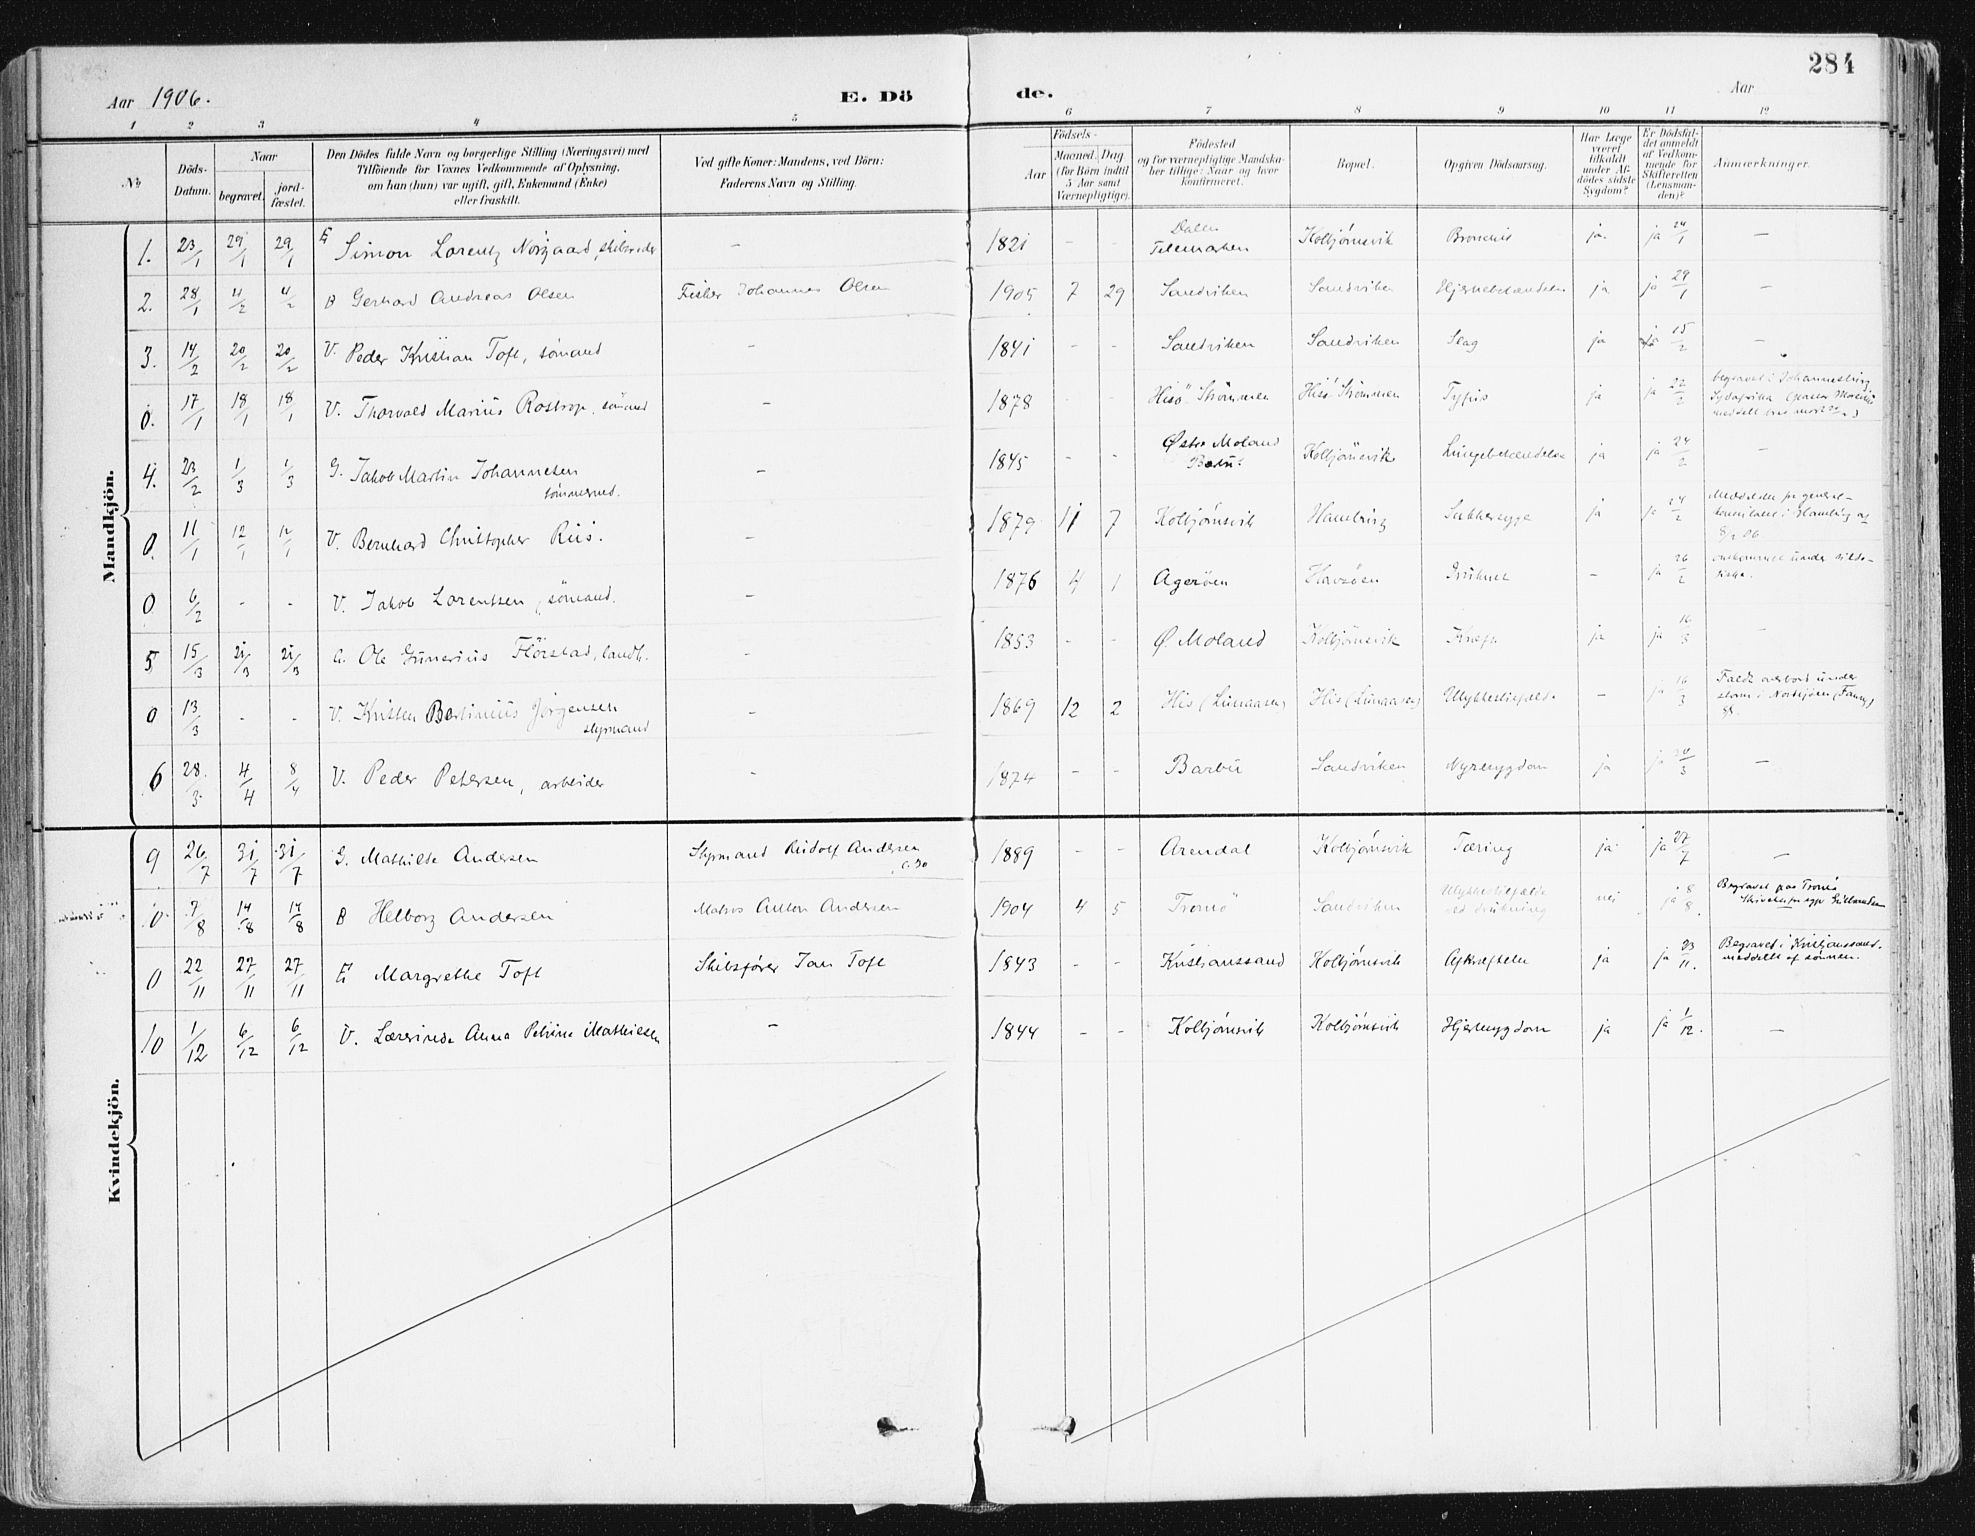 284
Aar 1906.
E. Dö
de.
Aar
1 2 3 4 5
6 7 8 9 10 11 12
No
Döds-
Datum.
Naar
begravet.
jord-
fæstet.
Den Dödes fulde Navn og borgerlige Stilling (Næringsvei) med
Tilföiende for Voxnes Vedkommende af Oplysning,
om han (hun) var ugift, gift, Enkemand (Enke)
eller fraskilt.
Ved gifte Koner: Mandens, ved Börn:
Faderens Navn og Stilling.
Födsels-
Aar
Maaned. Dag
(for Börn indtil
5 Aar samt
Værnepligtige).
Födested
og for værnepligtige Mandska-
ber tillige: Naar og hvor
konfirmeret.
Bopæl.
Opgiven Dödsaarsag.
Har Læge
været
tilkaldt
under Af-
dödes sidste
Sygdom?
Er Dödsfal-
det anmeldt
af Vedkom-
mende for
Skifteretten
(Lensman-
den)?
Anmærkninger.
Mandkjön.
1. 23/1 29/1 29/1 E Simon Lorentz Nörgaard, skibsreder - 1821 - - Dalen Telemarken Kolbjørnsvik Bronchit ja ja 24/1 -
2. 28/1 4/2 4/2 B Gerhard Andreas Olsen Fisker Johannes Olsen 1905 7 29 Sandviken Sandviken Hjernebetændelse ja ja 29/1 -
3. 14/2 20/2 20/2 V. Peder Kristian Toft, sömand - 1841 - - Sandviken Sandviken Slag ja ja 15/2 -
0. 17/1 18/1 18/1 V. Thorvald Marius Rostrup, sömand - 1878 - - Hisö Strömmen Hisö Strömmen Tyfus ja ja 22/2 begravet i Johannesburg Sydafrika
4. 23/2 1/3 1/3 G. Jakob Martin Johannesen - 1845 - - Østre Moland Kolbjörnsvik Lungebetændelse ja ja 24/2 -
0. 11/1 12/1 12/1 V. Bernhard Christopher Riis. - 1879 11 7 Kolbjørnsvik Hamburg Sukkersyge ja ja 24/2 Meddelelse fra general-konsulatet i Hamburg af 8/2 06.
0 6/2 - - V. Jakob Lorentsen, sömand. - 1876 4 1 Agerøen Havsöen Druknet - ja 26/2 omkommet under silde-fiske.
5 15/3 21/3 21/3 G. Ole Gunerius Flörstad, landh. - 1853 - - Ø Moland Kolbjörnsvik Kræft ja ja 16/3 -
0 13/3 - - V. Kristen Bertinius Jörgensen styrmand - 1869 12 2 His (Lunaasen) His (Lunaasen) Ulykkestilfælde - ja 16/3 Faldt overbord under storm i Nordsjöen
6 28/3 4/4 8/4 V. Peder Petersen, arbeider - 1874 - - Barbu Sandviken Nyresygdom ja ja 30/3 -
Kvindekjön.
9 26/7 31/7 31/7 G. Mathilde Andersen Styrmand Rudolf Andersen 1889 - - Arendal Kolbjørnsvik Tæring ja ja 27/7 -
0 7/8 14/8 14/8 B Helborg Andersen Matros Anton Andersen 1904 4 5 Tromö Sandviken Ulykkestilfælde ved drukning nei ja 8/8. Begravet paa Tromö
0 22/11 27/11 27/11 E Margrethe Toft Skibsfører Jan Toft 1843 - - Kristianssand Kolbjørnsvik Afkræftelse ja ja 23/11. Begravet i Kristianssand. meddelt af sönnen.
10 1/12 6/12 6/12 V. Lærerinde Anna Petrine Mathiesen - 1844 - - Kolbjørnsvik Kolbjørnsvik Hjertesygdom ja ja 1/12. -